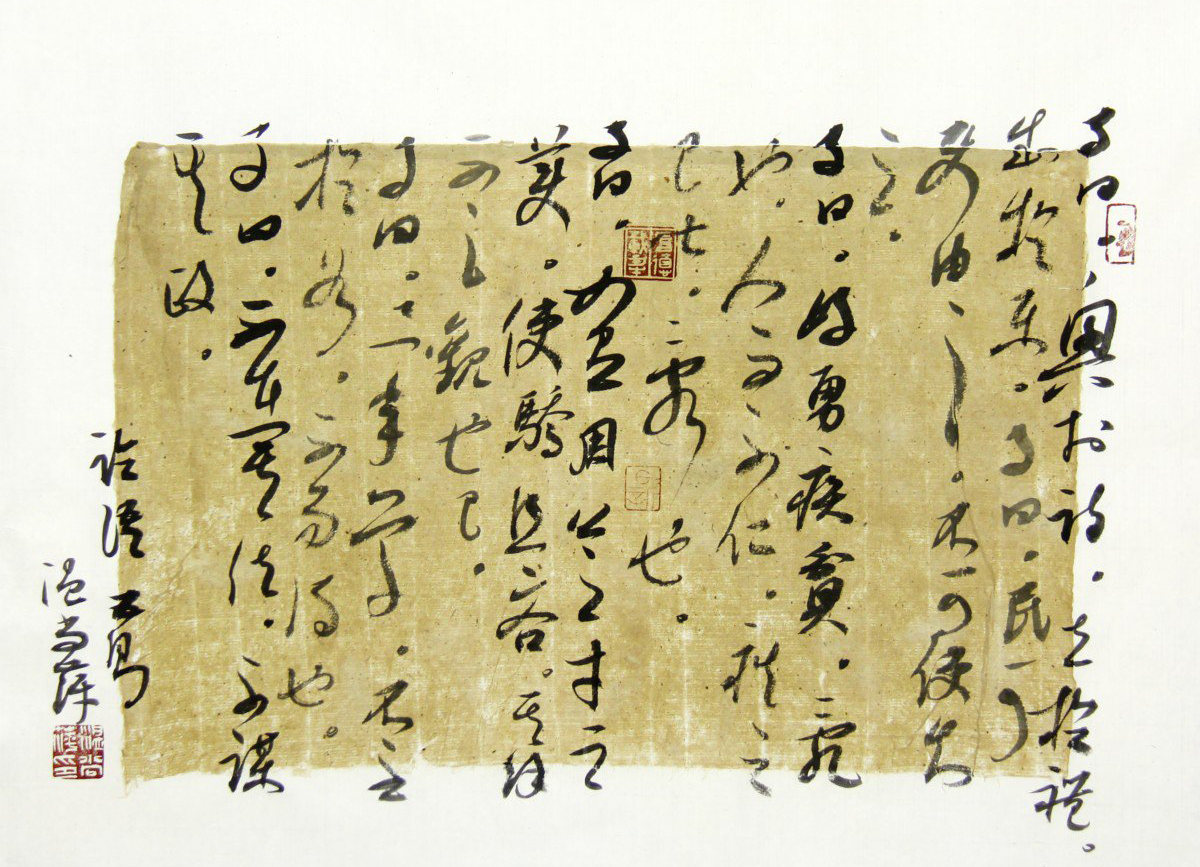 子曰。興於詩。立於禮。
成於樂。子曰。民可
使由之。不可使知
之。
子曰。好勇疾貧。亂
也。人而不仁。疾之
已甚。亂也。
子曰。如有周公之才之
美。使驕且吝。其餘
不足觀也已。
子曰。三年學。不至
於穀。不易得也。
子曰。不在其位。不謀
其政。
論語
温尚